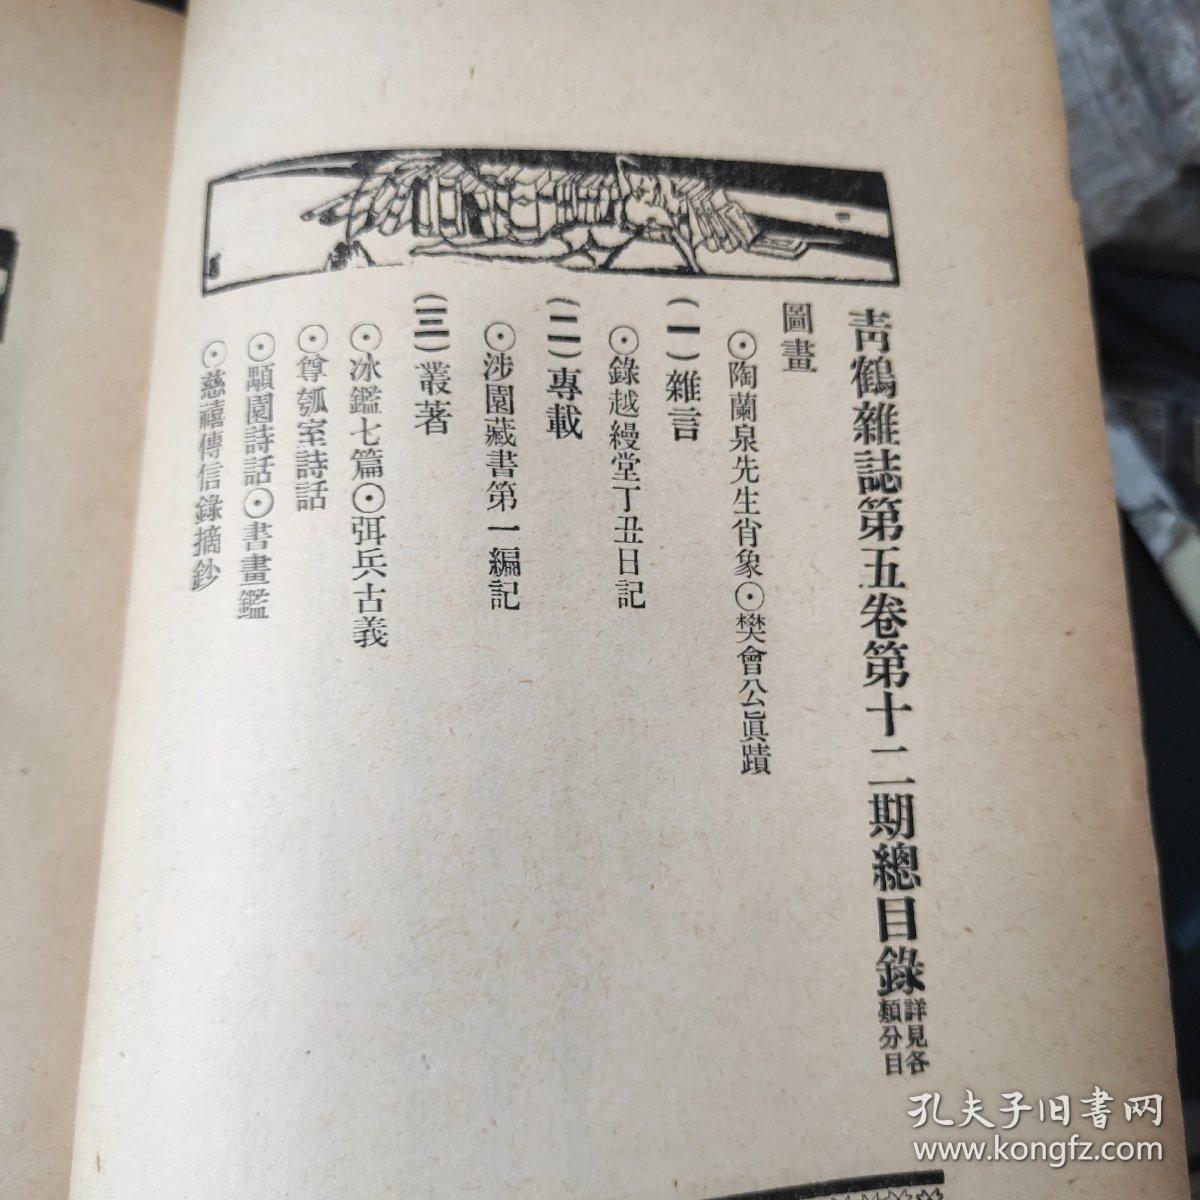 青鶴雜誌第五卷第十二期總目錄 詳見各類分目
圖畫
⊙陶蘭泉先生肖象⊙樊會公眞蹟
(一)雜言
⊙錄越縵堂丁丑日記
(二)專載
⊙涉園藏書第一編記
(三)叢著
⊙冰鑑七篇⊙弭兵古義
⊙尊瓠室詩話
⊙顒園詩話⊙書畫鑑
⊙慈禧傳信錄摘鈔
孔夫子旧书网
www.kongfz.com